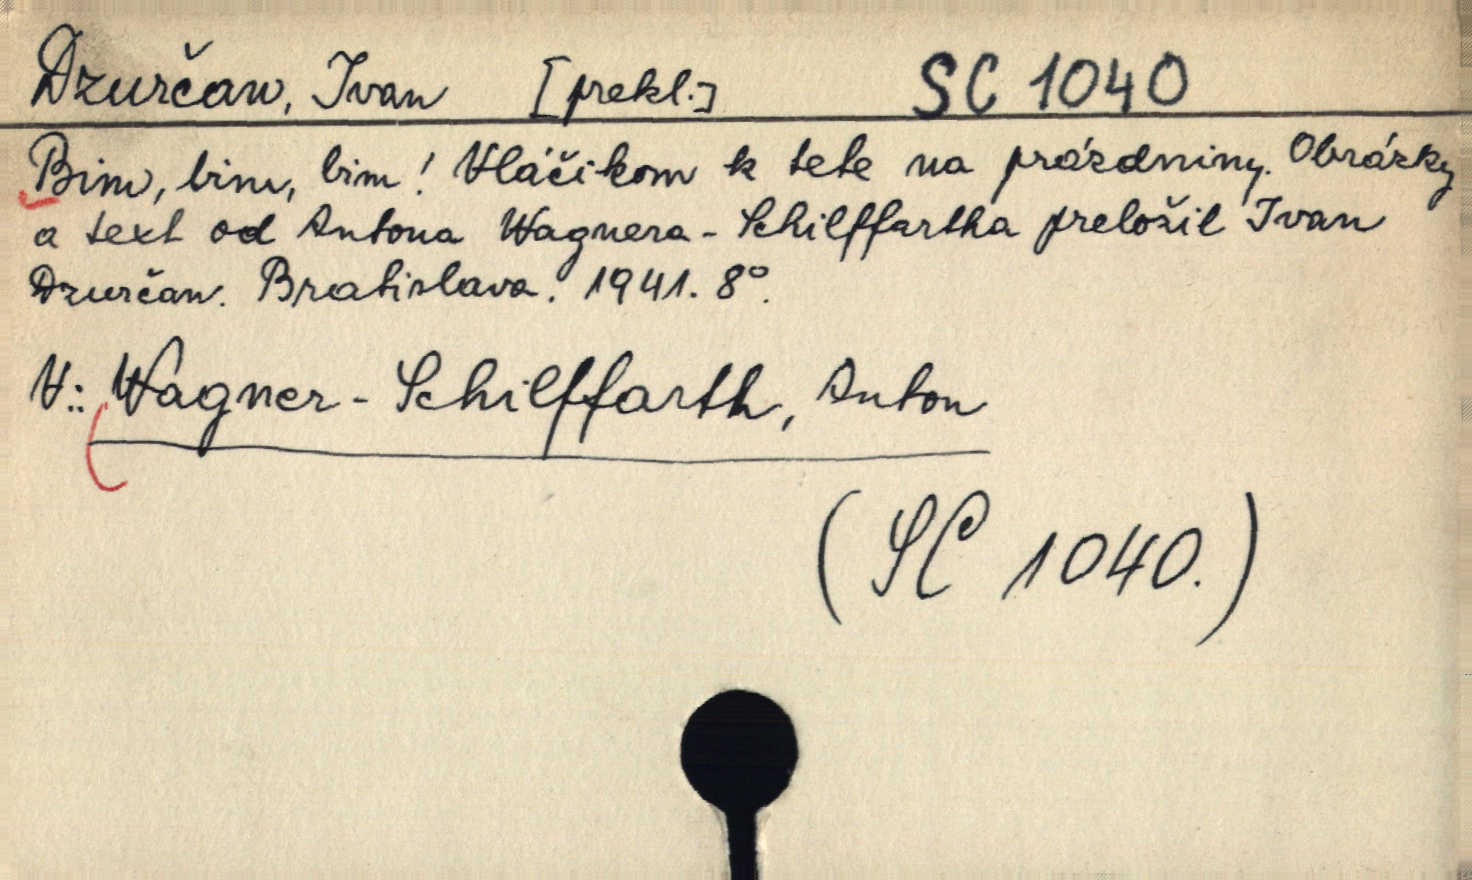 Dzurčan, Ivan [prekl.] SC 1040
Bim, bim, bim! Vláčikom k tete na prázdniny. Obrázky
a text od Antona Wagnera-Schilffartha preložil Ivan
Dzurčan. Bratislava. 1941. 8°.
V.: Wagner-Schilffarth, Anton
(SC 1040.)